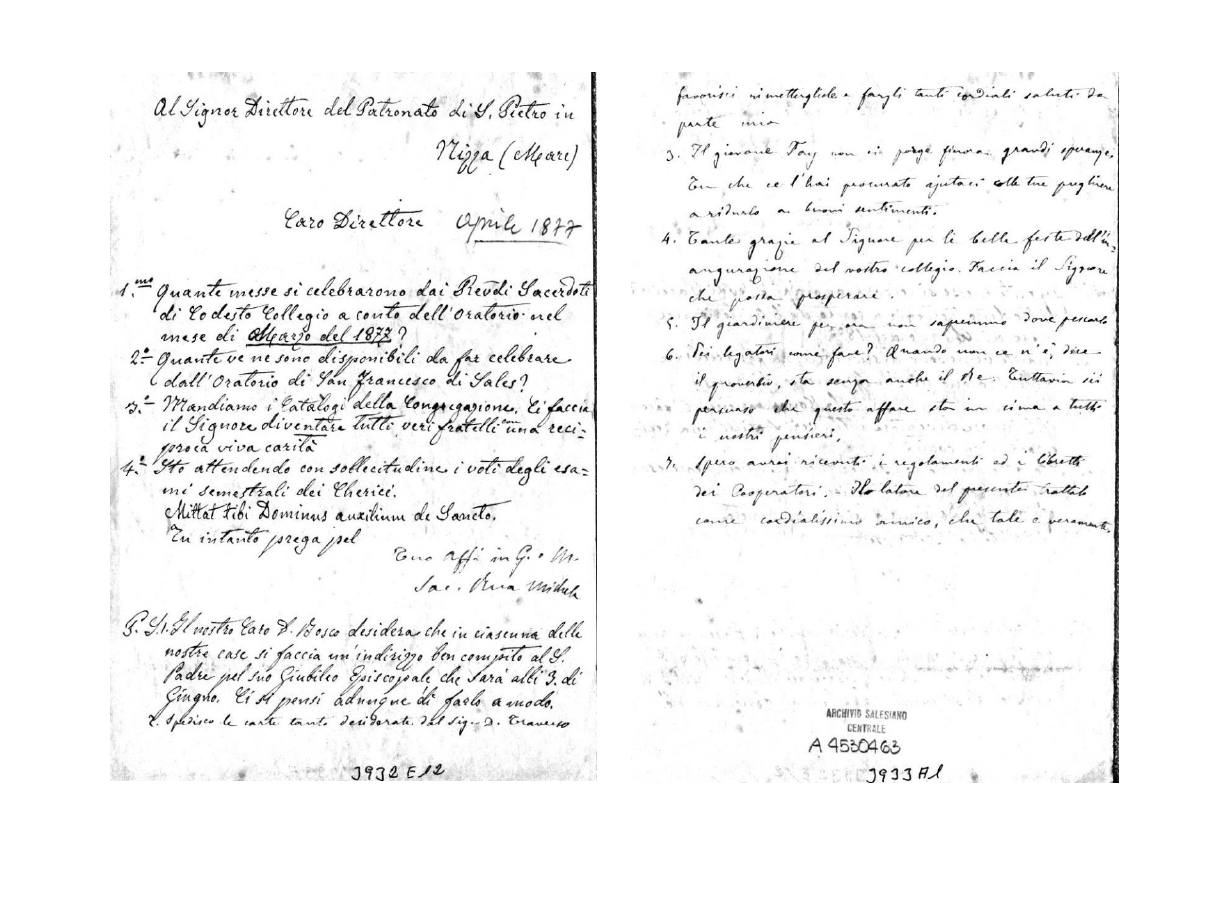 Al Signor Direttore del Patronato di S. Pietro in
Nizza (Mare)
Caro Direttore Aprile 1877
1.mo Quante messe si celebrarono dai Revdi Sacerdoti
di Codesto Collegio a conto dell'Oratorio nel
mese di Marzo del 1877?
2.o Quante ve ne sono disponibili da far celebrare
dall'Oratorio di San Francesco di Sales?
3.o Mandiamo i Catalogi della Congregazione. Ci faccia
il Signore diventare tutti veri fratelli con una reci=
proca viva carità
4.o Sto attendendo con sollecitudine i voti degli esa=
mi semestrali dei Cherici.
Mittat tibi Dominus auxilium de Sancto.
Tu intanto prega pel
Tuo Aff. in G. e M.
Sac. Rua Michele
P. S. 1. Il nostro Caro D. Bosco desidera che in ciascuna delle
nostre case si faccia un'indirizzo ben compito al S.
Padre pel suo Giubileo Episcopale che sarà alli 3. di
Giugno. Ci si pensi adunque di farlo a modo.
2. Spedisco le carte tanto desiderate dal Sig. D. Traverso
J932 E12
favorisci rimettergliele e fargli tanti cordiali saluti da
parte mia
3. Il giovane non ci porge finora grandi speranze.
Tu che ce l'hai procurato ajutaci colle tue preghiere
a ridurlo a buoni sentimenti.
4. Tante grazie al Signore per le belle feste dell'in=
augurazione del vostro collegio. Faccia il Signore
che possa prosperare.
5. Il giardiniere per ora non sapremmo dove pescarlo
6. Pei legatori come fare? Quando non ce n'è, dice
il proverbio, sta senza anche il Re. Tuttavia sii
persuaso che questo affare sta in cima a tutti
i nostri pensieri.
7. Spero avrai ricevuti i regolamenti ed i libretti
dei Cooperatori. Il latore del presente trattalo
come cordialissimo amico, che tale è veramente.
ARCHIVIO SALESIANO
CENTRALE
A 4530463
J933 A1